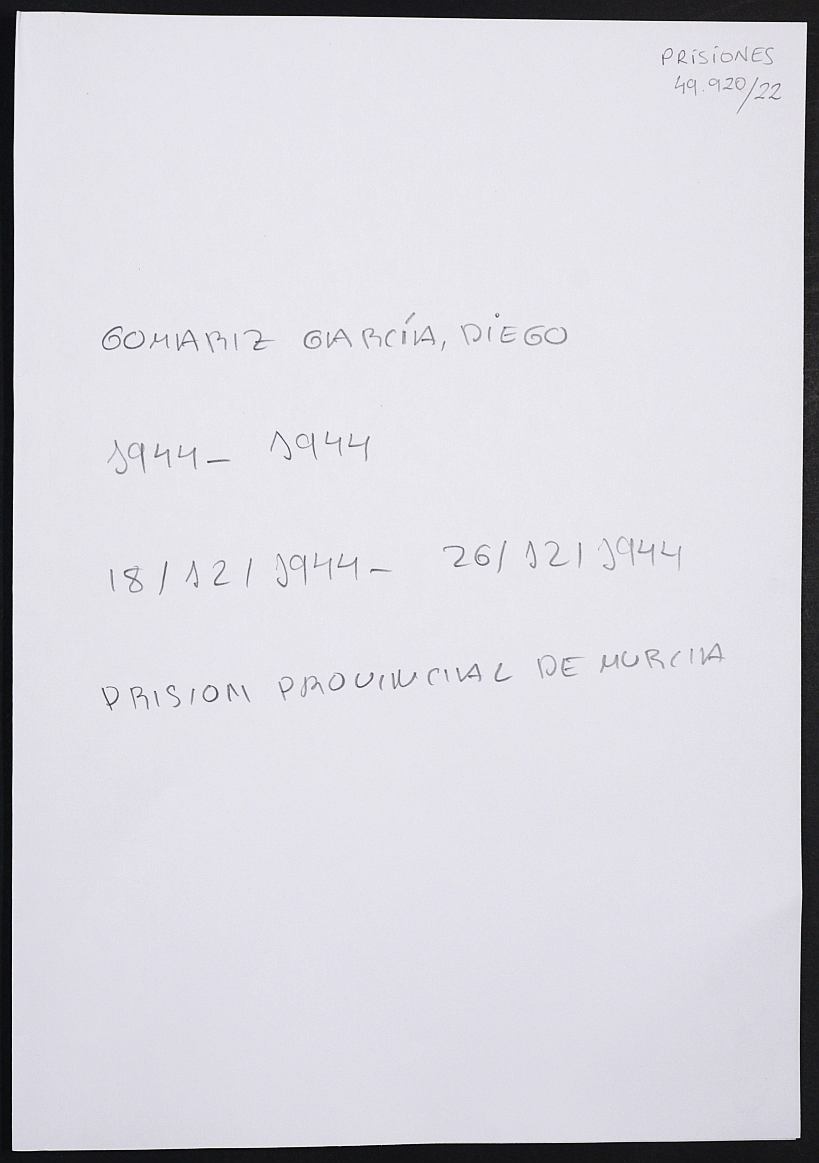 PRISIONES
49.920/22
GOMARIZ GARCÍA, DIEGO
1944- 1944
18/12/1944- 26/12/1944
PRISION PROVINCIAL DE MURCIA